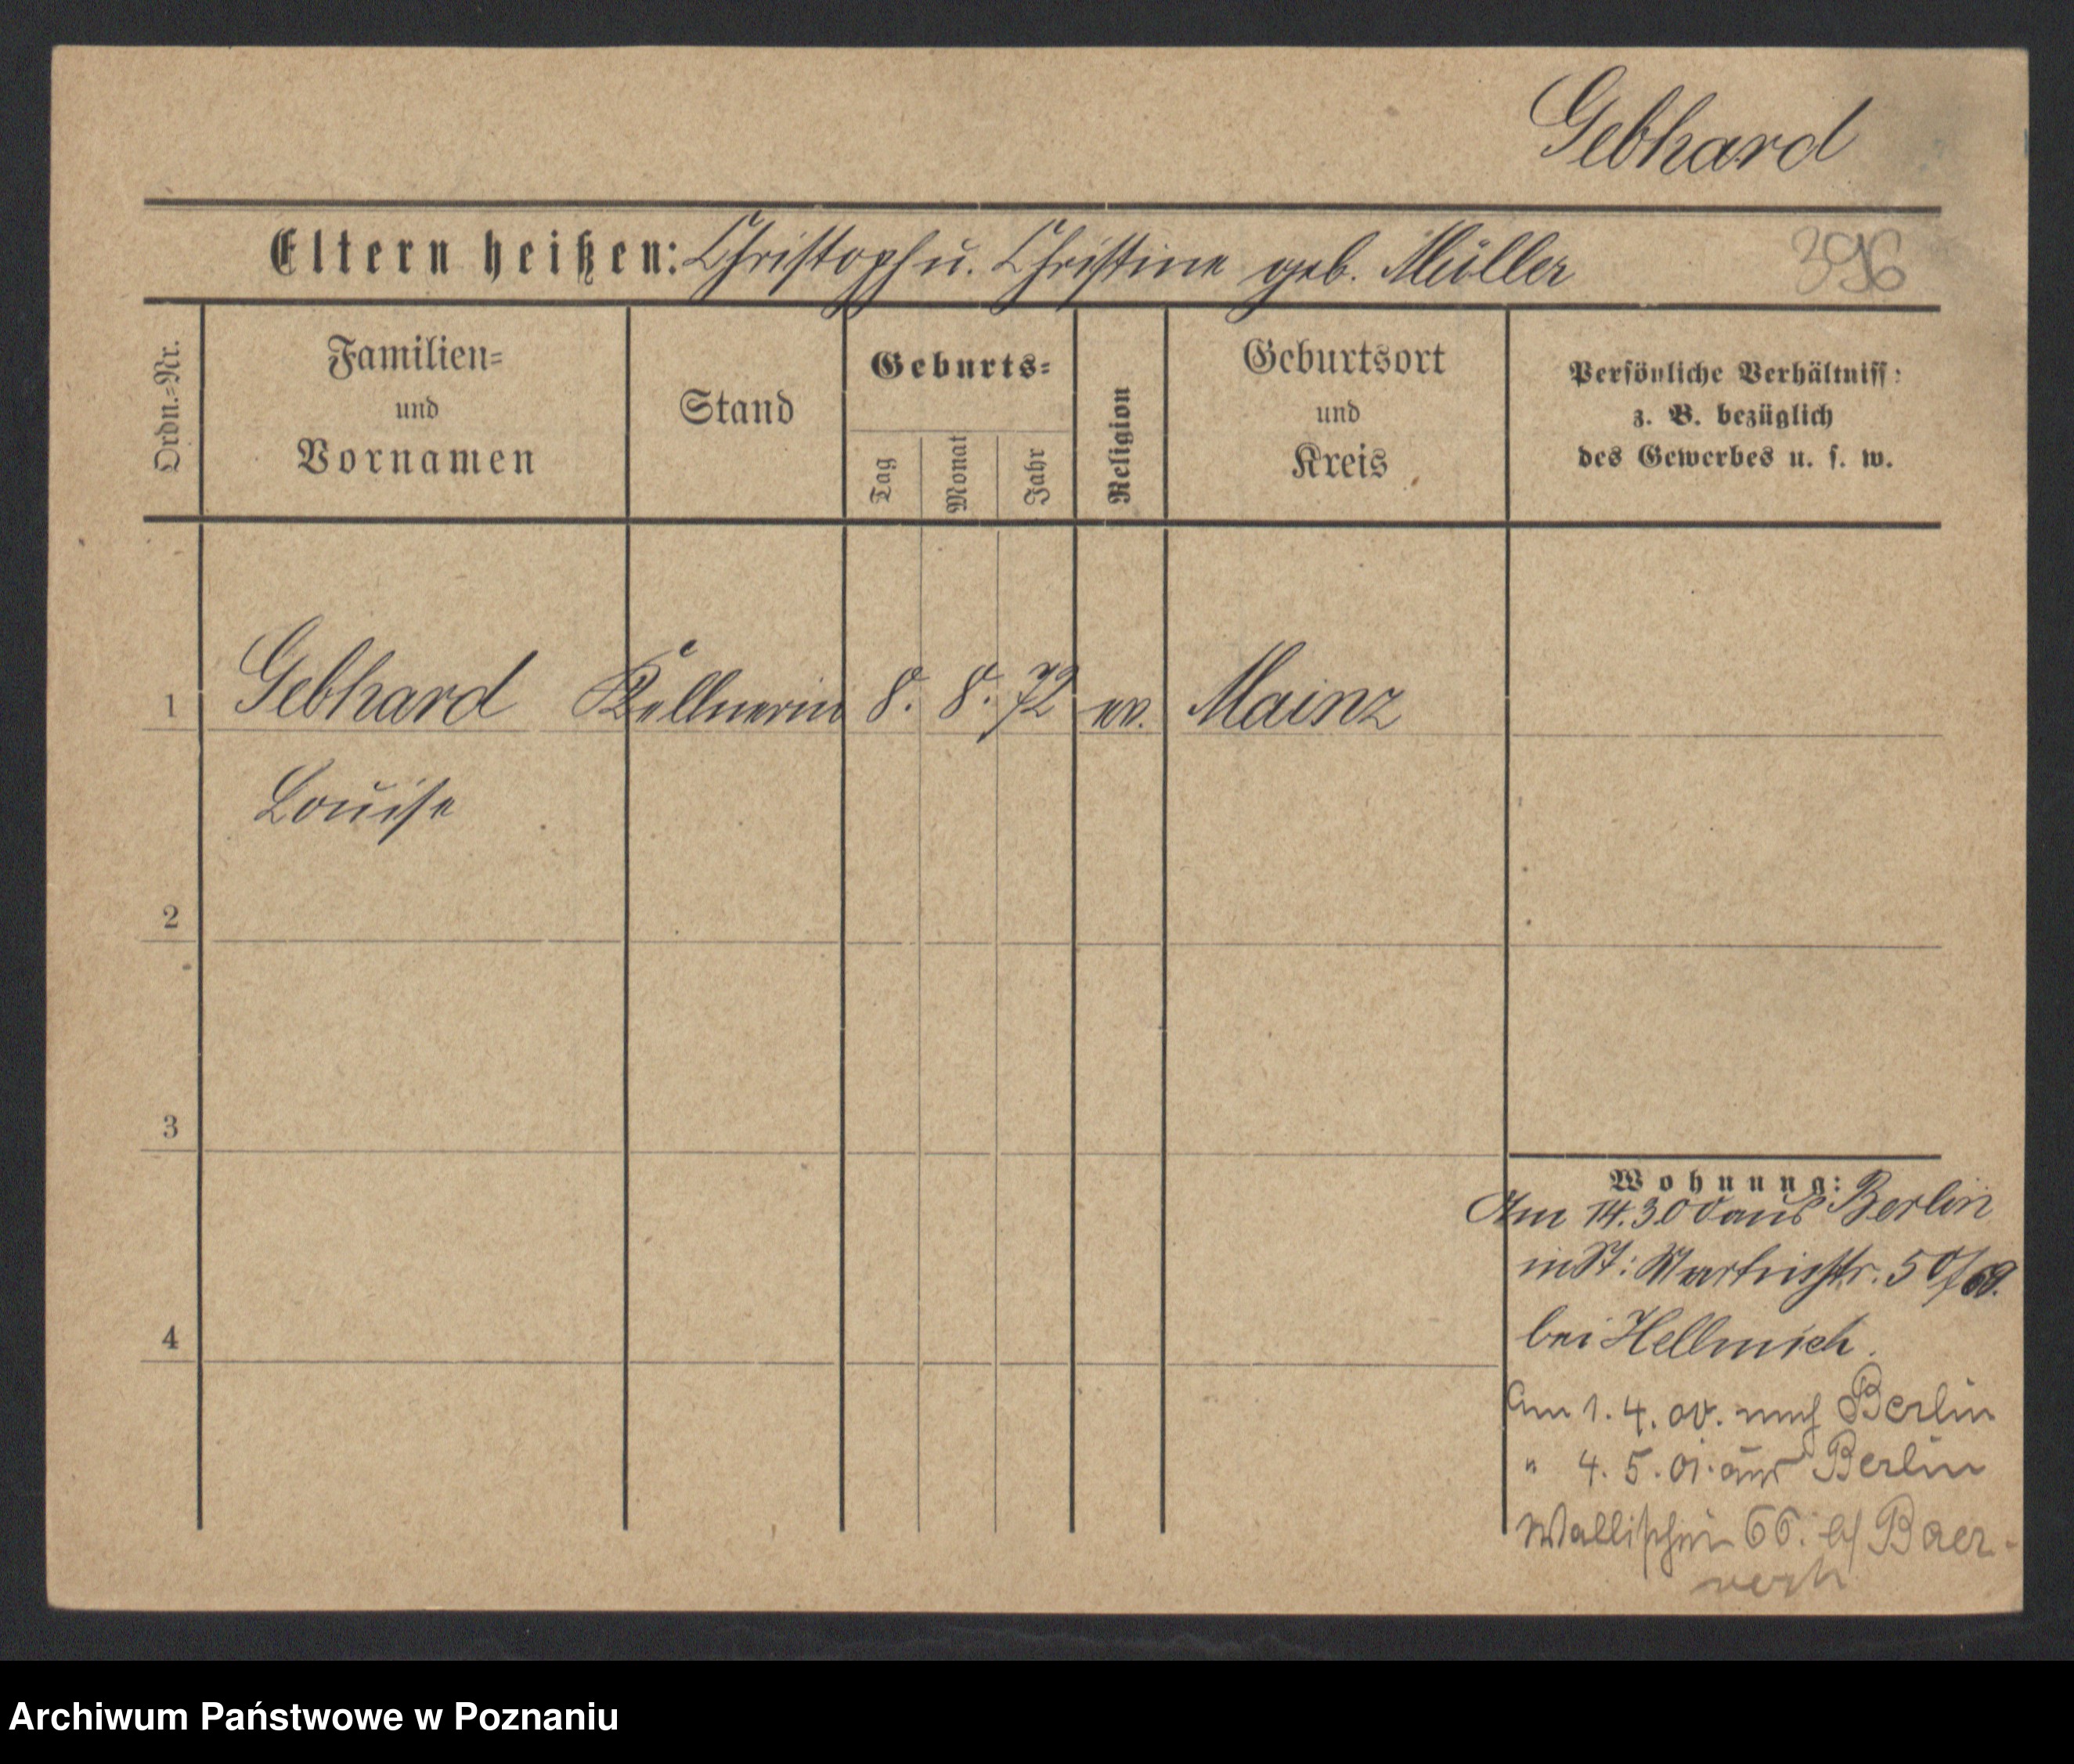 Gebhard
Eltern heißen: Christoph u. Christine geb. Müller
396
Ordn.=Nr.
Familien=
und
Vornamen
Stand
Geburts=
Tag
Monat
Jahr
Religion
Geburtsort
und
Kreis
Persönliche Verhältniss:
z. B. bezüglich
des Gewerbes u. s. w.
1 Gebhard Kellnerin 8. 8. 72 ev. Mainz
Louise
2
3
4
Wohnung:
Am 14.3.00 aus Berlin
in St: Martinstr. 50/
bei Hellmich.
Am 1. 4. 00. nach Berlin
" 4. 5. 01. aus Berlin
Wallischei 66. b/ Baer-
Archiwum Państwowe w Poznaniu